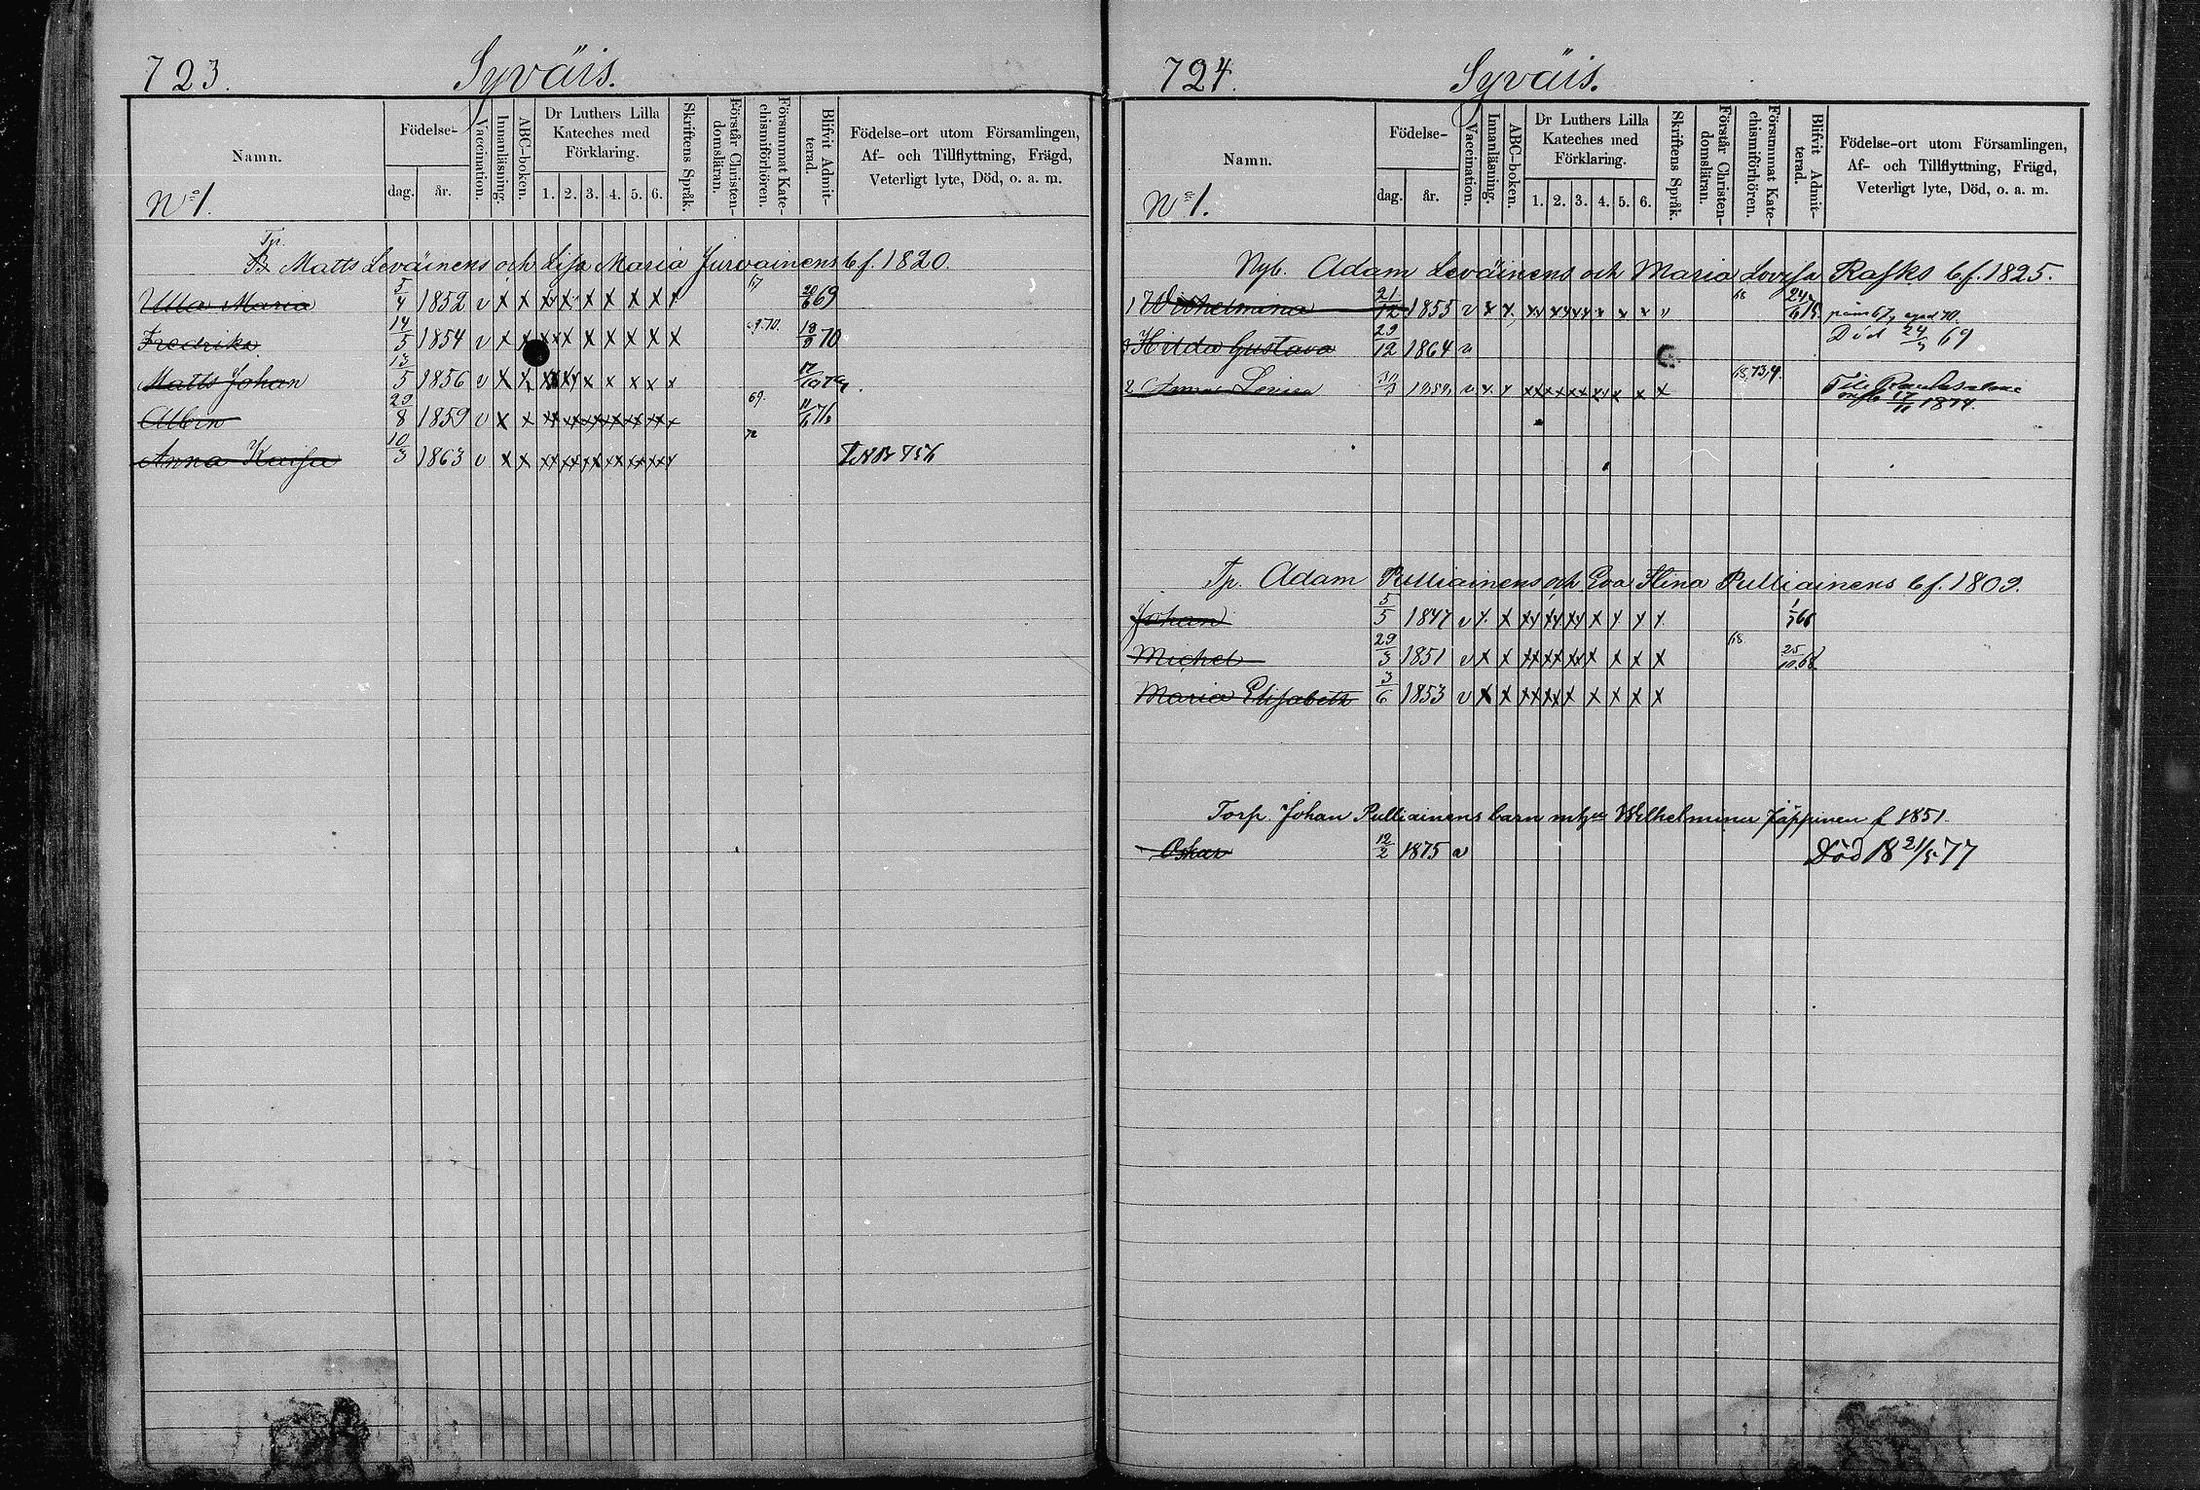 723.
Syväis.
Namn.
Födelse-
dag.
år.
Vaccination.
Innanläsning.
ABC-boken.
Dr Luthers Lilla
Kateches med
Förklaring.
1. 2. 3. 4. 5. 6.
Skriftens Språk.
Förstår Christen-
domsläran.
Försummat Kate-
chismiförhören.
Blifvit Admit-
terad.
Födelse-ort utom Församlingen,
Af- och Tillflyttning, Frägd,
Veterligt lyte, Död, o. a. m.
No 1.
Tp.
Matts Leväinens och Lisa Maria Jurvainens b f. 1820.
Ulla Maria 5/4 1852 v x x x x x x x x x 67 20/6 69
Fredrika 14/5 1854 v x x x x x x x x x 70 70
Matts Johan 13/5 1856 v x x x x x x x x x
Albin 29/8 1859 v x x x x x x x x x 69. 76
Anna Kaisa 10/3 1863 v x x xx xx xx xx xx xx x 72
724.
Syväis.
Namn.
Födelse-
dag.
år.
Vaccination.
Innanläsning.
ABC-boken.
Dr Luthers Lilla
Kateches med
Förklaring.
1. 2. 3. 4. 5. 6.
Skriftens Språk.
Förstår Christen-
domsläran.
Försummat Kate-
chismiförhören.
Blifvit Admit-
terad.
Födelse-ort utom Församlingen,
Af- och Tillflyttning, Frägd,
Veterligt lyte, Död, o. a. m.
No 1.
Nyb. Adam Leväinens och Maria Lovisa Rasks b f. 1825.
1 Wilhelmina 21/12 1855 v x x xx xx xx x x x 68
3 Hilda Gustava 29/12 1864 v Död 24/3 69
2 Anna Lovisa v x x xx xx xx xx x x x 68, 73, 4. Till
1874.
Tp. Adam Pulliainens och Eva Stina Pulliainens b f. 1809.
Johan 5/5 1847 v x x xx xx xx x x x x 66
Michel 29/3 1851 v x x xx xx xx x x x x 68 25/10 68
Maria Elisabeth 3/6 1853 v x x xx xx x x x x x
Torp. Johan Pulliainens barn m hu Wilhelmina Jäppinen f 1851
Oskar 12/2 1875 v Död 18 21/5 77